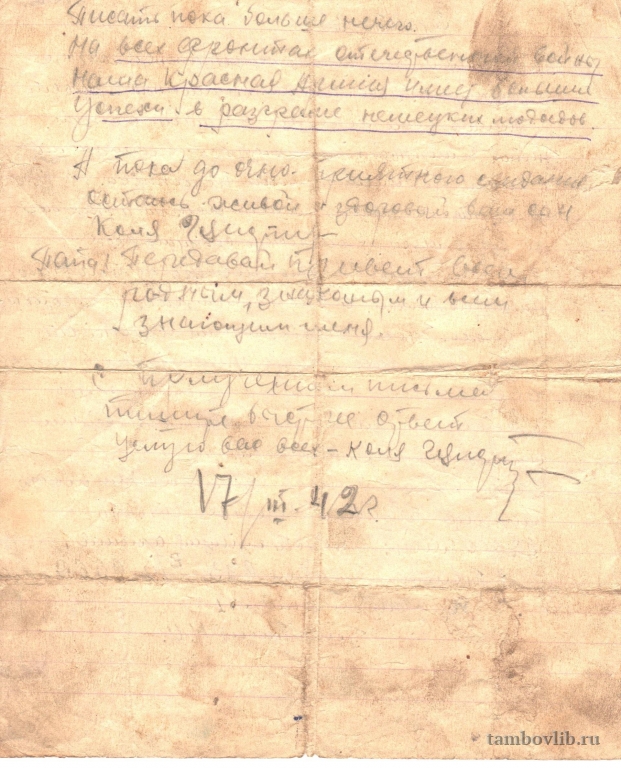 Писать пока больше нечего.
На всех фронтах отечественной войны
наша Красная Армия имеет большие
успехи в разгроме немецких
А пока до приятного свидания
остаюсь живой и здоровый ваш сын
Коля
Папа! Передавай привет всем
родным, знакомым и всем
знающим меня.
С получением письма
пишите быстрее ответ
целую вас всех - Коля
17/III-42г.
tambovlib.ru